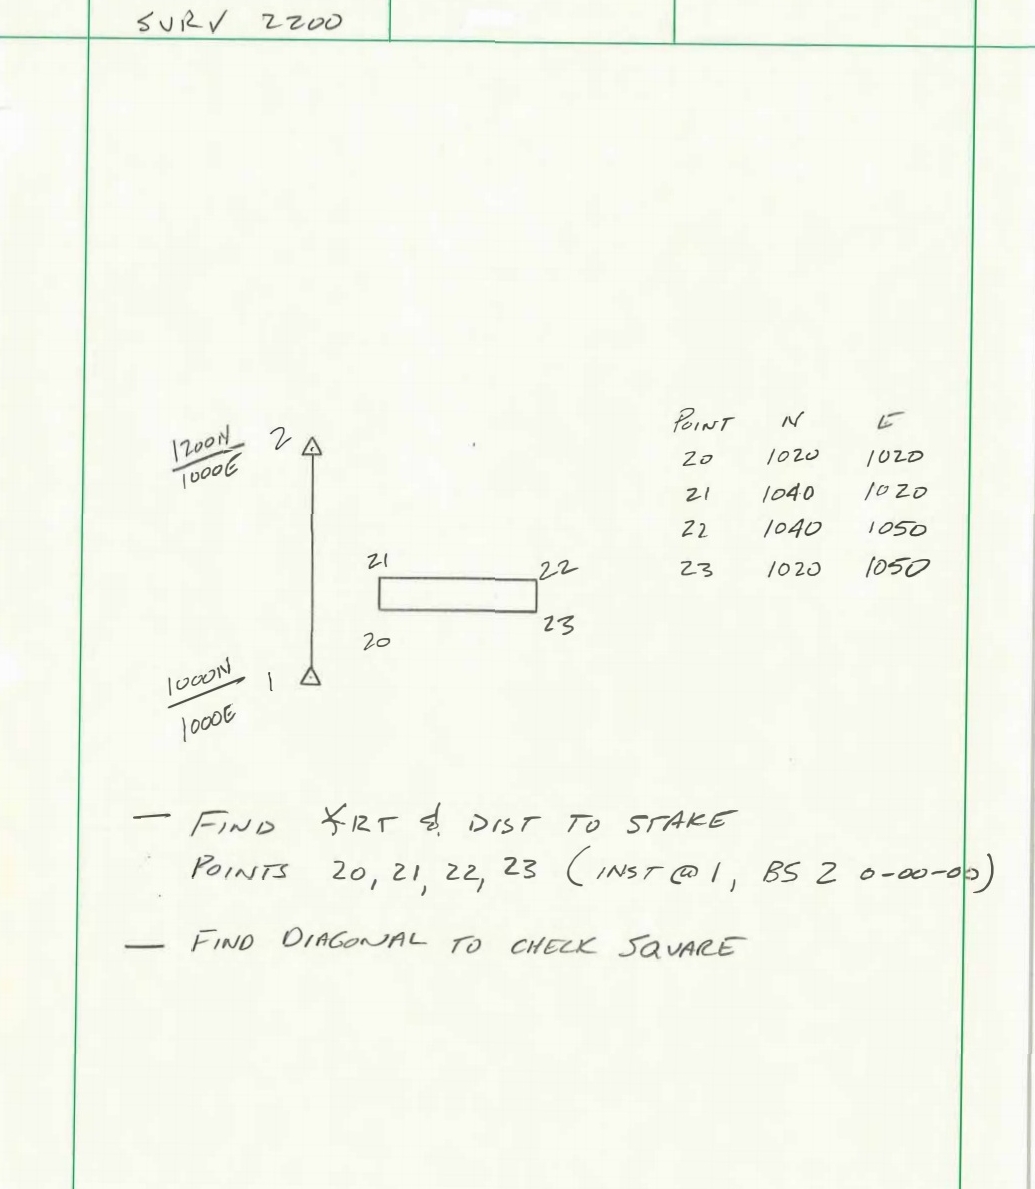 SURV 2200
POINT N E
20 1020 1020
21 1040 1020
22 1040 1050
23 1020 1050
1200N
1000E
2
21
22
20
23
1000N
1000E
1
— FIND ∡RT & DIST TO STAKE
POINTS 20, 21, 22, 23 (INST @ 1, BS 2 0-00-00)
— FIND DIAGONAL TO CHECK SQUARE